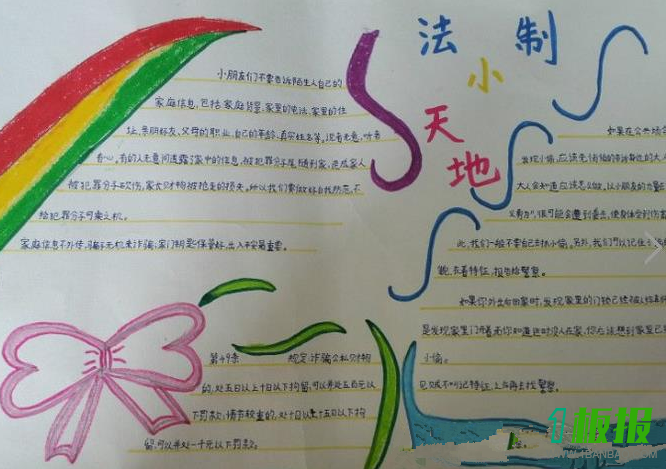 法 制
小
天
地
小朋友们不要告诉陌生人自己的
家庭信息,包括家庭背景、家里的电话,家里的住
址、亲朋好友、父母的职业、自己的年龄、真实姓名等,说者无意,听者
有心,有的人无意间透露了家中的信息,被犯罪分子尾随到家,造成家人
被犯罪分子砍伤,财物被抢走的损失。所以我们要做好自我防范,不
给犯罪分子可乘之机。
家庭信息不外传,骗子无机来诈骗;家门钥匙保管好,出入平安最重要。
第49条 规定:诈骗公私财物
的,处五日以上十日以下拘留,可以并处五百元以
下罚款;情节较重的,处十日以上十五日以下拘
留,可以并处一千元以下罚款。
如果在公共场
发现小偷,应该先悄悄的告诉身边的大
大人会知道应该怎么做,以小朋友的力量
很可能会遭到歹徒,使身体受到伤害
此,我们一般不要自己去抓小偷。另外,我们可以记住小偷
貌、衣着特征,报告给警察。
如果你外出后回家时,发现家里的门锁已经被
是发现家里门开着而你知道这时没人在家,你应该想到家里已
小偷。
记特征,上马再去找警察。
1板报
WWW.1BANBAO.COM